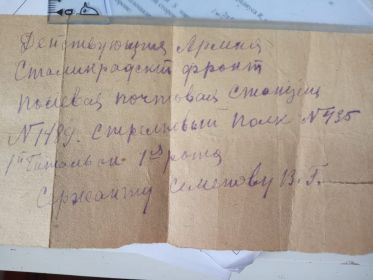 Действующая Армия
Сталинградский фронт
полевая почтовая станция
№1489. Стрелковый полк №435
1й батальон 1я рота
Сержанту Семенову В. Г.